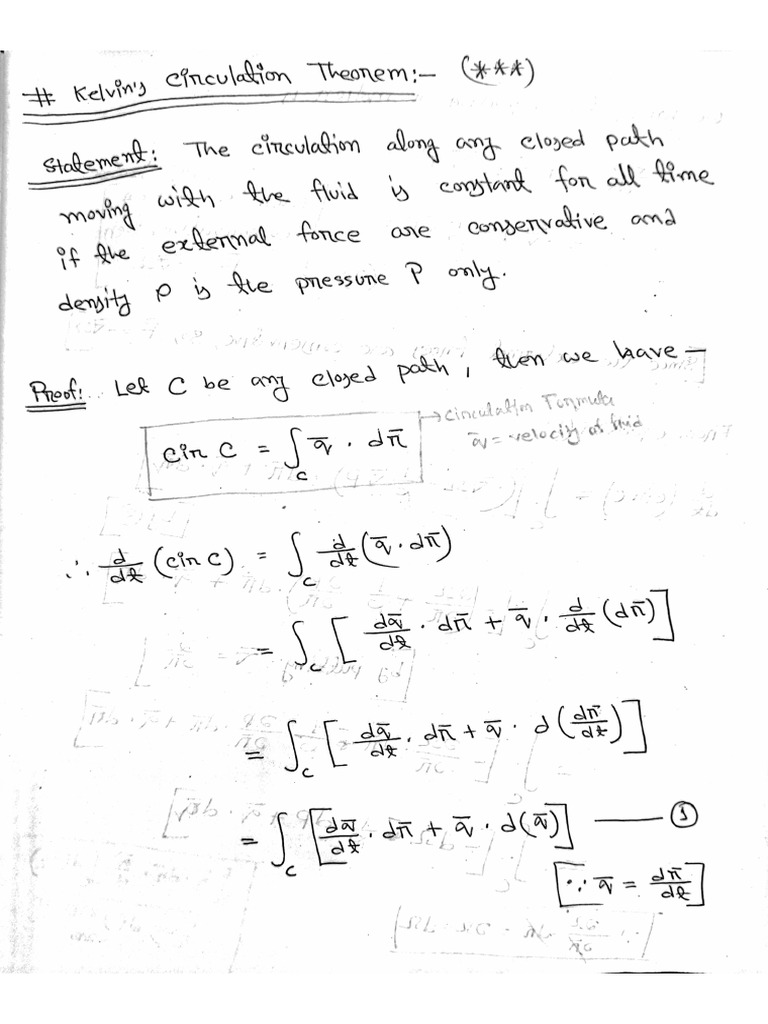 # Kelvin's Circulation Theorem:- (***)
Statement: The circulation along any closed path
moving with the fluid is constant for all time
if the external force are conservative and
density ρ is the pressure P only.
Proof: Let C be any closed path, then we have —
cir C = ∫_C q̄ · dr̄ → circulation Formula
q̄ = velocity of fluid
∴ d/dt (cir C) = ∫_C d/dt (q̄ · dr̄)
= ∫_C [ dq̄/dt · dr̄ + q̄ · d/dt (dr̄) ]
= ∫_C [ dq̄/dt · dr̄ + q̄ · d(dr̄/dt) ]
= ∫_C [ dq̄/dt · dr̄ + q̄ · d(q̄) ] —— ①
[ ∵ q̄ = dr̄/dt ]